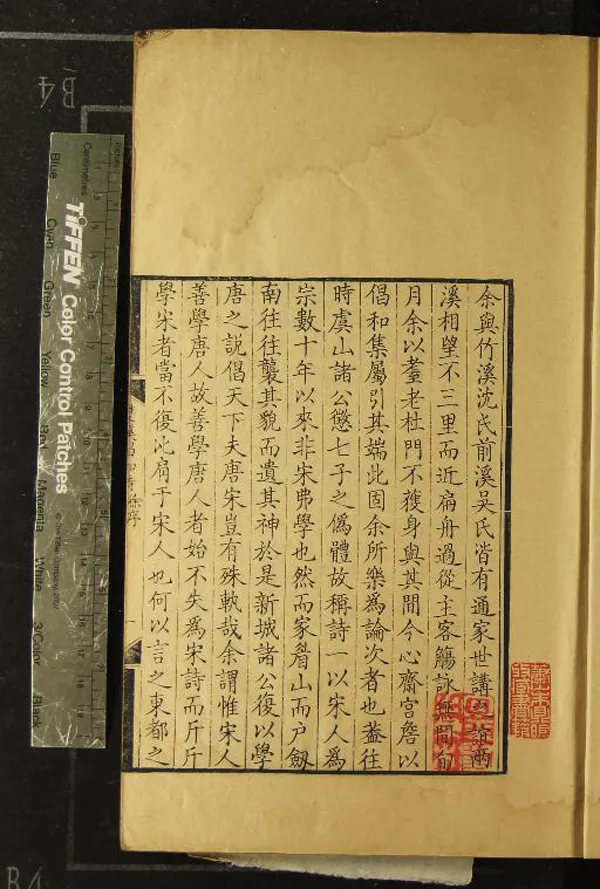 余與竹溪沈氏前溪吳氏皆有通家世講之誼兩
溪相望不三里而近扁舟過從主客觴詠無間旬
月余以耋老杜門不獲身與其間今心齋宮詹以
倡和集屬引其端此固余所樂為論次者也葢往
時虞山諸公懲七子之僞體故稱詩一以宋人為
宗數十年以來非宋弗學也然而家眉山而户劔
南往往襲其貌而遺其神於是新城諸公復以學
唐之說倡天下夫唐宋豈有殊軌哉余謂惟宋人
善學唐人故善學唐人者始不失為宋詩而斤斤
學宋者當不復沘扃于宋人也何以言之東都之
TIFFEN Color Control Patches
Centimetres
Inches
Blue
Cyan
Green
Yellow
Red
Magenta
White
3/Color
Black
B4
B4